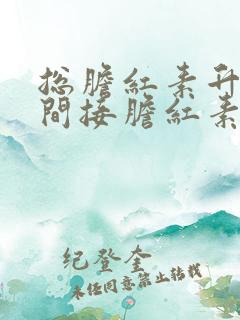 总膽紅素升
間接膽紅素
纪登奎
未经同意禁止转载